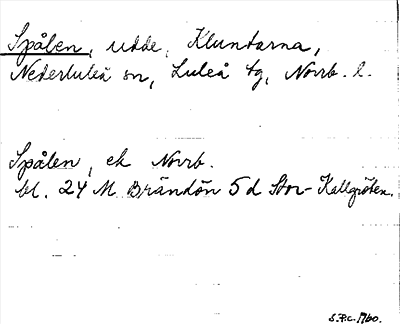 Spålen, udde, Kluntarna,
Nederluleå sn, Luleå tg, Norrb. l.
Spålen, ek Norrb.
bl. 24 M Brändön 5 d Stor-Kallgrötan.
S.F.c. 1960.